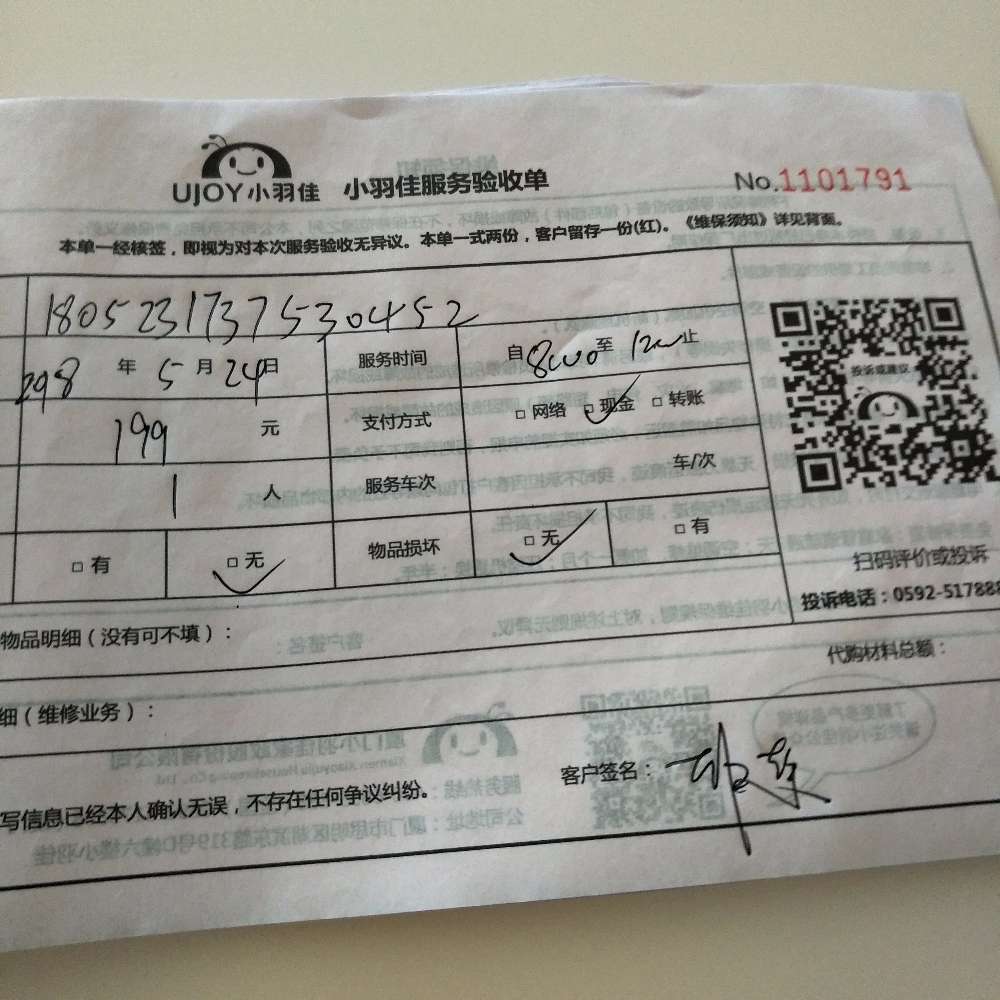 UJOY小羽佳 小羽佳服务验收单 No.1101791
本单一经核签，即视为对本次服务验收无异议。本单一式两份，客户留存一份(红)。《维保须知》详见背面。
1805231737530452
年 5 月 24日 服务时间 自 8:00 至 12:00 止
199 元 支付方式 □ 网络 □ 现金 □ 转账
1 人 服务车次 车/次
□ 有 □ 无 物品损坏 □ 无 □ 有
投诉或建议
扫码评价或投诉
投诉电话：0592-517888
物品明细（没有可不填）：
代购材料总额：
细（维修业务）：
写信息已经本人确认无误，不存在任何争议纠纷。
客户签名：